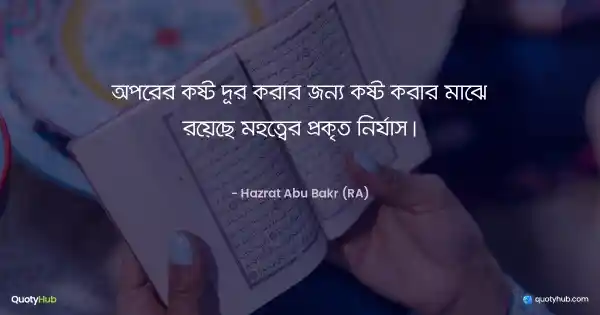 অপরের কষ্ট দূর করার জন্য কষ্ট করার মাঝে
রয়েছে মহত্বের প্রকৃত নির্যাস।
- Hazrat Abu Bakr (RA)
QuotyHub
quotyhub.com